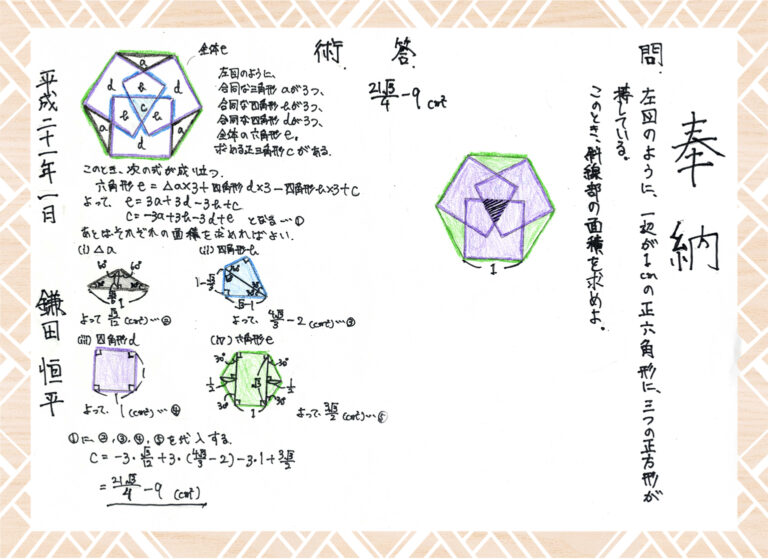 奉納
問.
左図のように、一辺が1cmの正六角形に、三つの正方形が
接している。
このとき、斜線部の面積を求めよ。
1
答.
21√3/4 - 9 cm²
術.
全体e
a
d
d
b
c
a
b
b
a
d
左図のように、
合同な三角形aが3つ、
合同な四角形bが3つ、
合同な四角形dが3つ、
全体の六角形e。
求める正三角形cがある。
このとき、次の式が成り立つ。
六角形e = △a×3+四角形d×3-四角形b×3+c
よって、e=3a+3d-3b+c
c=-3a+3b-3d+e となる…①
あとはそれぞれの面積を求めればよい.
(i) △a
60° 60°
1
よって √3/12 (cm²)…②
(ii) 四角形b
1-√3/3
√3-1
よって、4√3/3 - 2 (cm²)…③
(iii) 四角形d
1
1
よって、1 (cm²)…④
(iv) 六角形e
30° 30°
1/2 √3 1/2
30° 30°
1
よって、3√3/2 (cm²)…⑤
①に②,③,④,⑤を代入する.
C = -3・√3/12 + 3・(4√3/3 - 2) - 3・1 + 3√3/2
= 21√3/4 - 9 (cm²)
平成二十一年一月
鎌田恒平